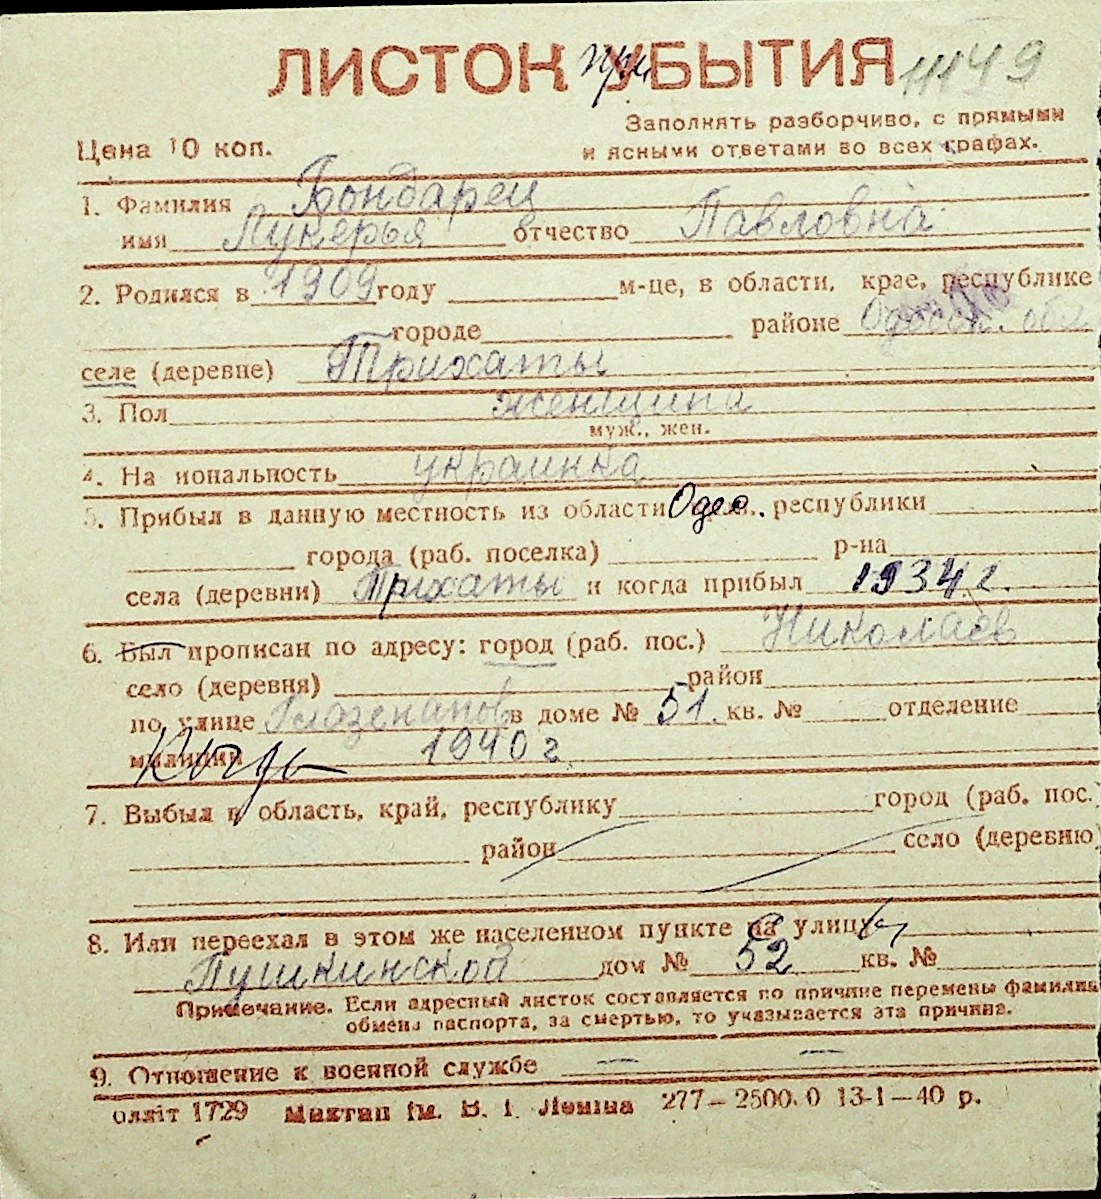 ЛИСТОК при УБЫТИЯ 11149
Заполнять разборчиво, с прямыми
Цена 10 коп. и ясными ответами во всех графах.
1. Фамилия Бондарец
имя Лукерья отчество Павловна
2. Родился в 1909 году м-це, в области, крае, республике
городе районе Одесск. обл
селе (деревне) Трихаты
3. Пол женщина
муж., жен.
4. На иональность украинка
5. Прибыл в данную местность из области Одес. республики
города (раб. поселка) р-на
села (деревни) Трихаты и когда прибыл 1934 г.
6. Был прописан по адресу: город (раб. пос.) Николаев
село (деревня) район
по улице Глазенапов в доме № 51. кв. № отделение
милиции 1940 г
7. Выбыл в область, край, республику город (раб. пос.
район село (деревню)
8. Или переехал в этом же населенном пункте на улицу
Пушкинской дом № 52 кв. №
Примечание. Если адресный листок составляется по причине перемены фамилии
обмена паспорта, за смертью, то указывается эта причина.
9. Отношение к военной службе — —
оллiт 1729 iм. В. I. Ленiна 277–2500.0 13-1–40 р.